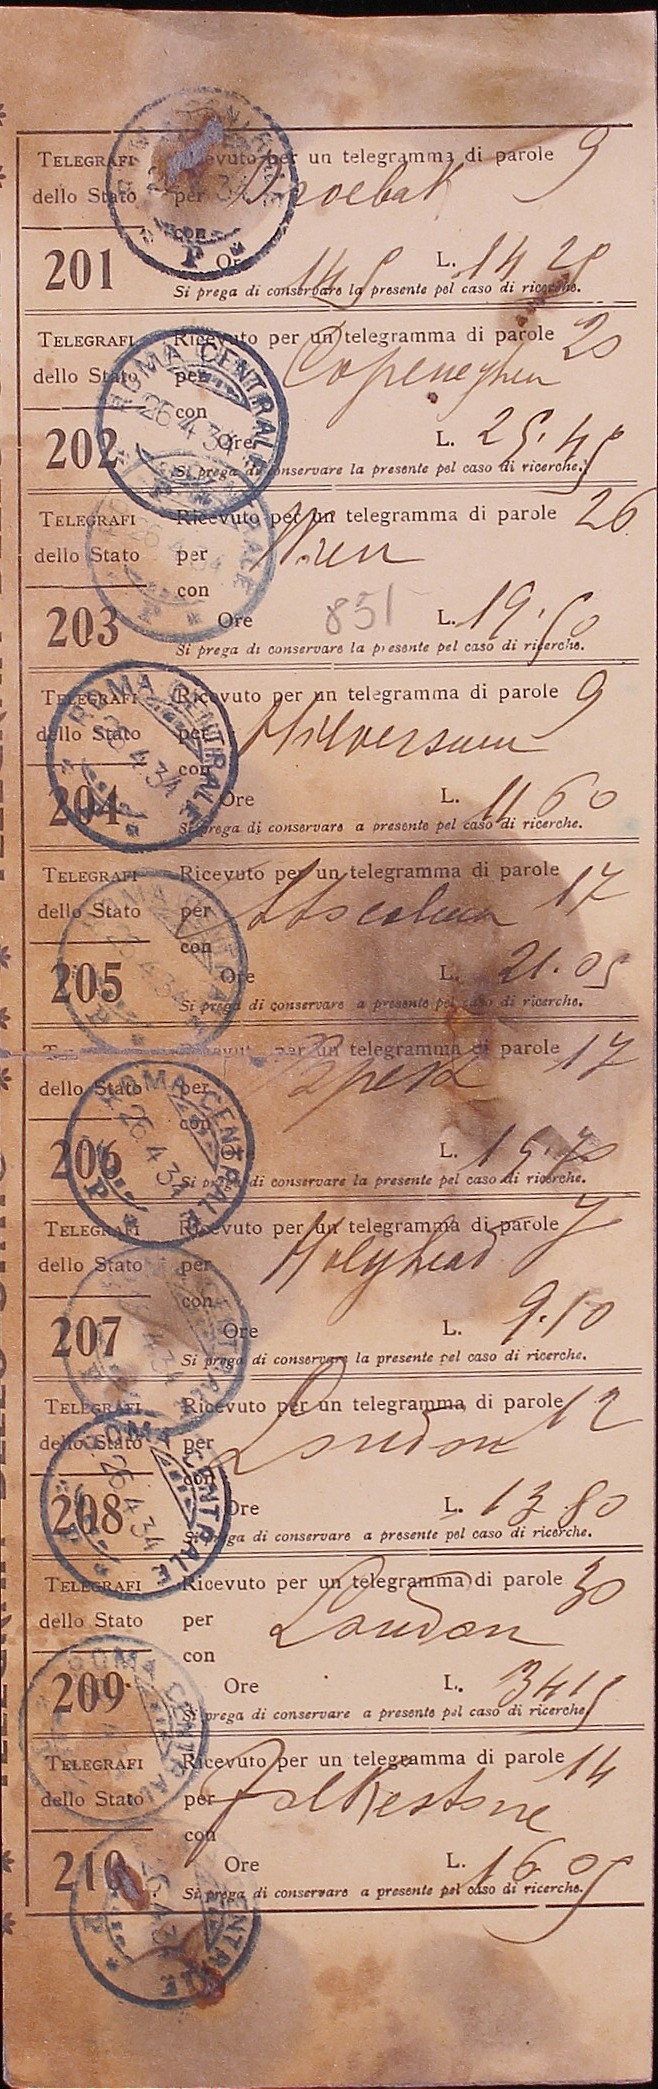 Telegrafi Ricevuto per un telegramma di parole 9
dello Stato per
201 Ore L. 14 25
Si prega di conservare la presente pel caso di ricerche.
Telegrafi Ricevuto per un telegramma di parole 20
dello Stato per Copeneghen
con
202 Ore L. 25.45
Si prega di conservare la presente pel caso di ricerche.
Telegrafi Ricevuto per un telegramma di parole 26
dello Stato per Wien
con
203 Ore 851 L. 19.50
Si prega di conservare la presente pel caso di ricerche.
Telegrafi Ricevuto per un telegramma di parole 9
dello Stato per Hilversum
con
204 Ore L. 11 60
Si prega di conservare a presente pel caso di ricerche.
Telegrafi Ricevuto per un telegramma di parole 17
dello Stato per
con
205 Ore L. 21.05
Si prega di conservare a presente pel caso di ricerche.
Ricevuto per un telegramma di parole 17
dello Stato per
con
206 L. 15.70
Si prega di conservare la presente pel caso di ricerche.
Telegrafi Ricevuto per un telegramma di parole 7
dello Stato per Holyhead
con
207 Ore L. 9.10
Si prega di conservare la presente pel caso di ricerche.
Telegrafi Ricevuto per un telegramma di parole 12
dello Stato per London
con
208 Ore L. 13 80
Si prega di conservare a presente pel caso di ricerche.
Telegrafi Ricevuto per un telegramma di parole 30
dello Stato per London
con
209 Ore L. 34 15
Si prega di conservare a presente pel caso di ricerche.
Telegrafi Ricevuto per un telegramma di parole 14
dello Stato per Folkestone
con
210 Ore L. 16 05
Si prega di conservare a presente pel caso di ricerche.
ROMA CENTRALE
26 4 34